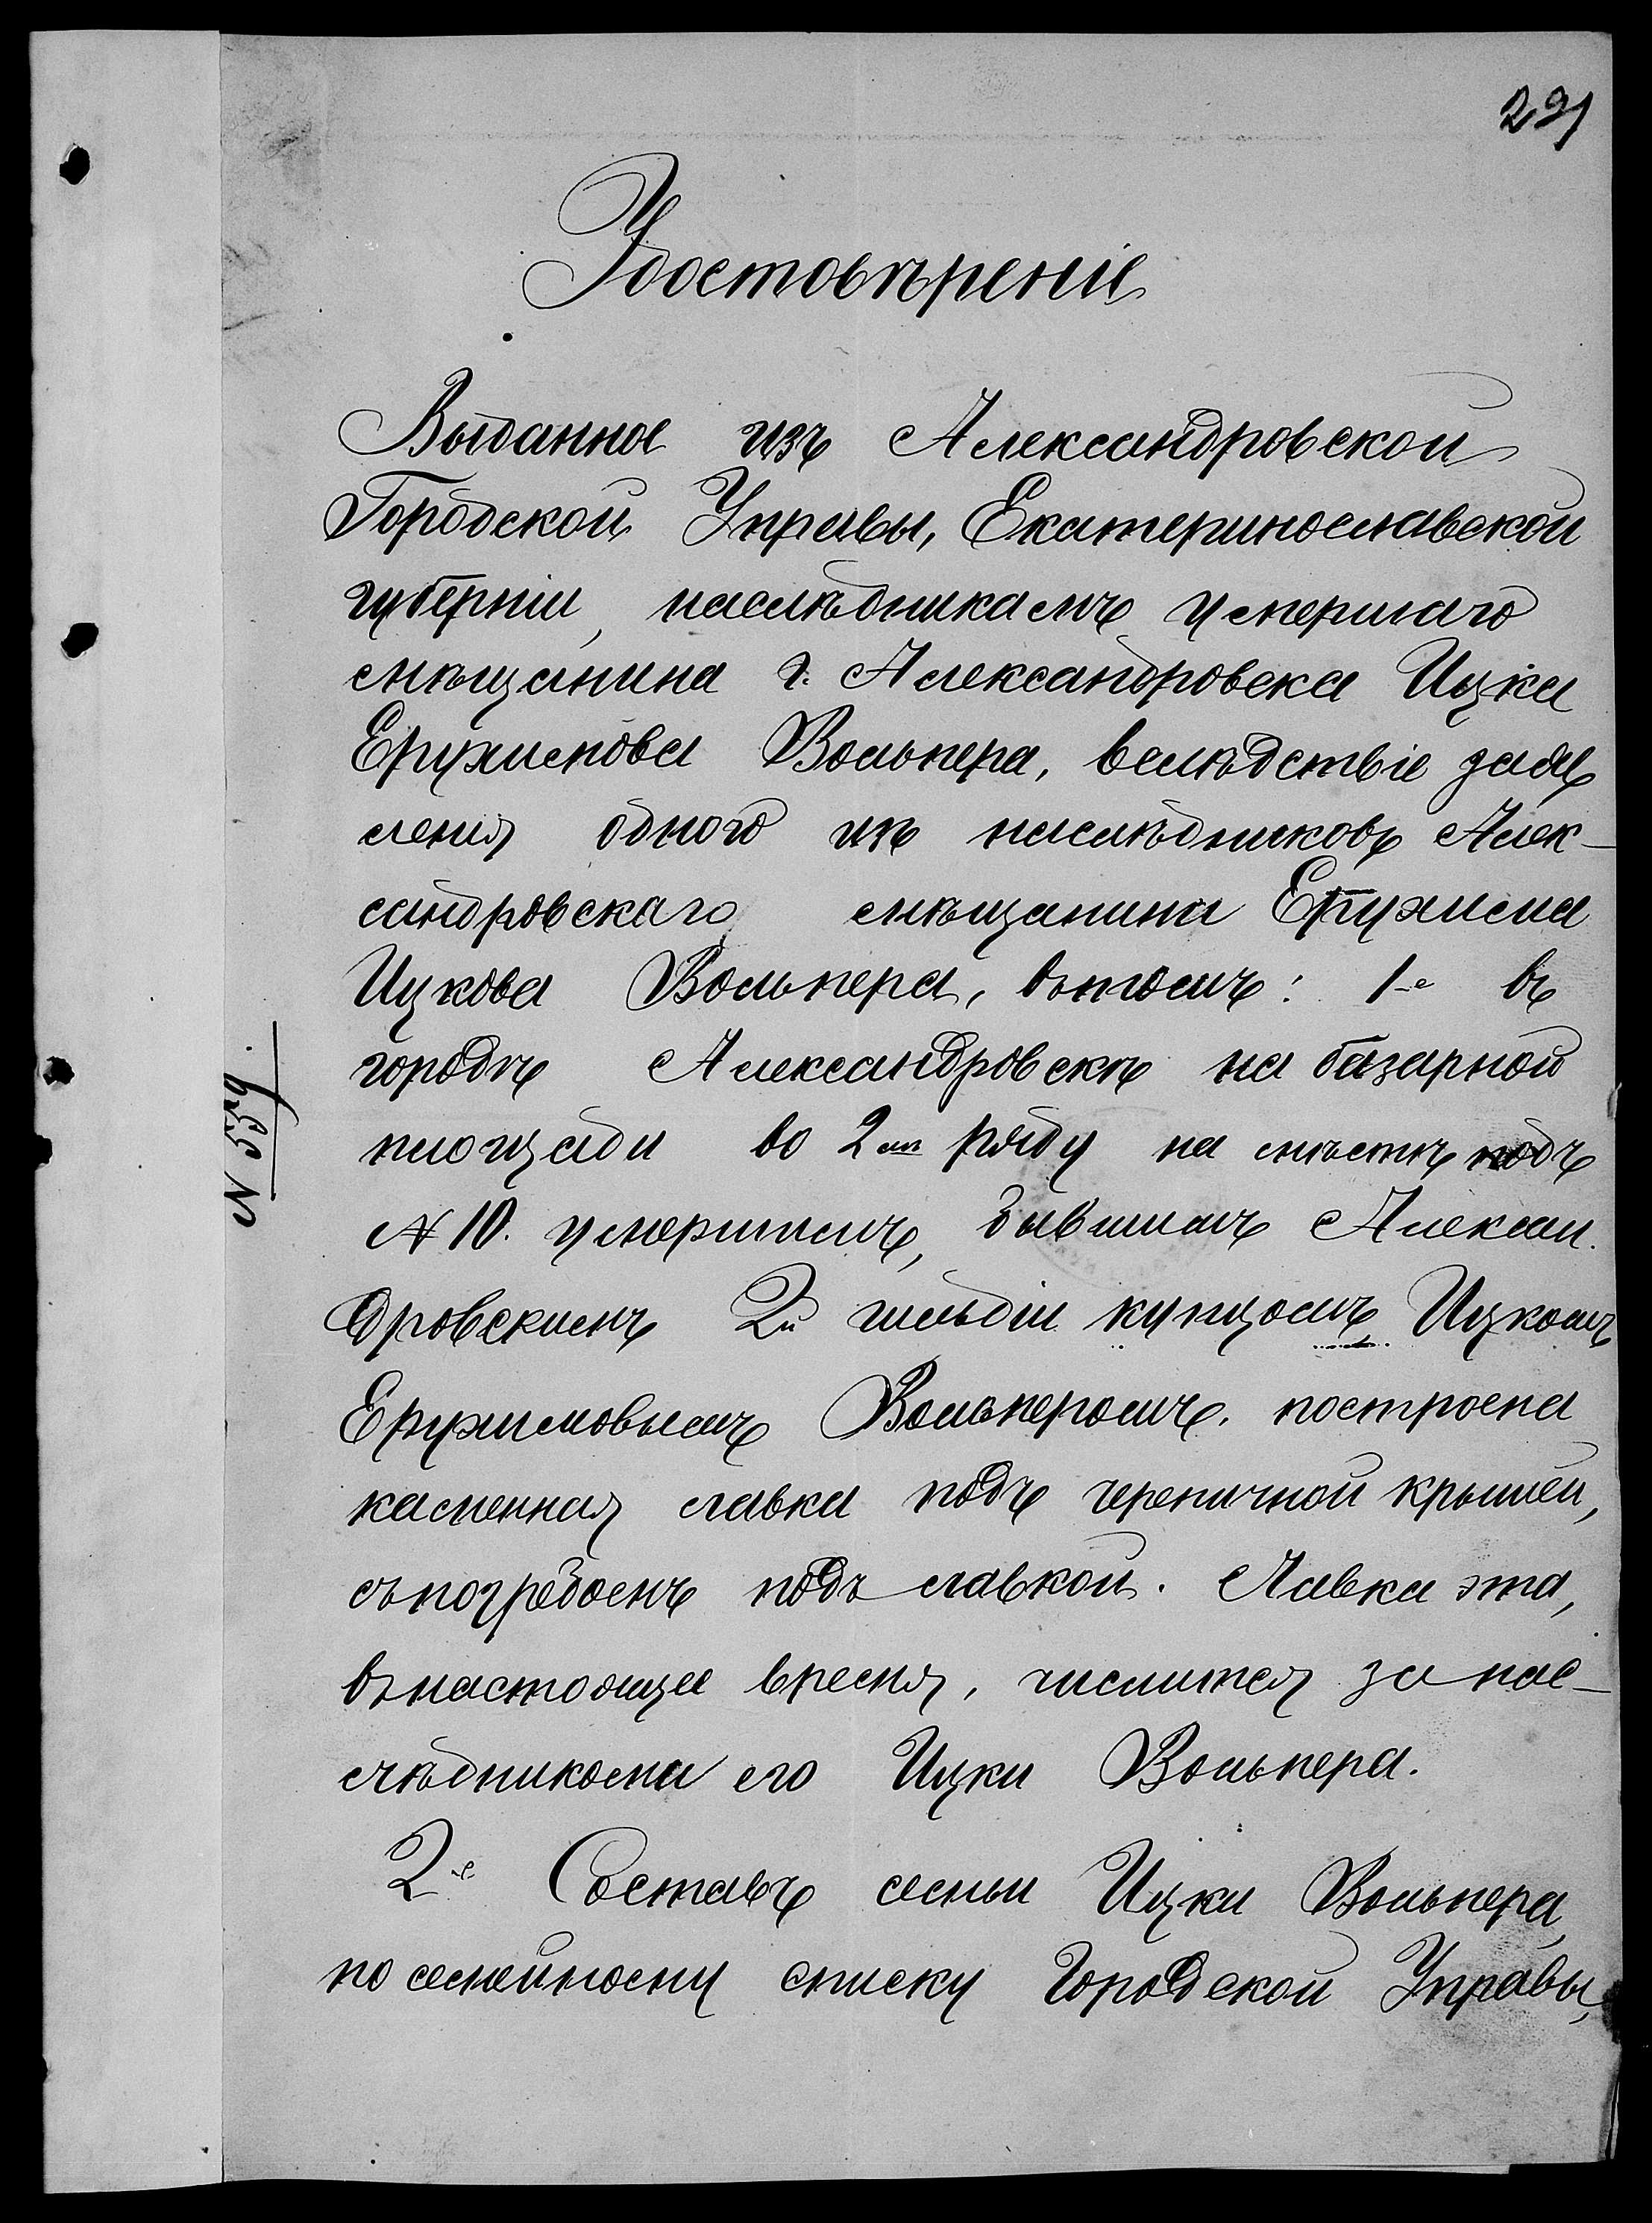 291
Удостовѣреніе
Выданное изъ Александровской
Городской Управы, Екатеринославской
губерніи, наслѣдникамъ умершаго
мѣщанина г. Александровска Ицка
Ерухимова Вольпера, вслѣдствіе заяв
ленія одного изъ наслѣдниковъ Алек-
сандровскаго мѣщанина Ерухима
Ицкова Вольпера, въ томъ: 1-е въ
городѣ Александровскѣ на базарной
площади во 2мъ ряду на мѣстѣ подъ
№ 10. умершимъ, бывшимъ Алексан.
дровскимъ 2й гильдіи купцомъ Ицкомъ
Ерухимовымъ Вольперомъ, построена
каменная лавка подъ черепичной крышей,
съ погребомъ подъ лавкой. Лавка эта,
въ настоящее время, числится за нас-
лѣдниками его Ицки Вольпера.
2е Составъ семьи Ицки Вольпера,
по семейному списку Городской Управы,